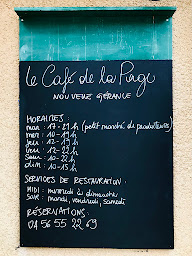 Le Café de la Plage
NOUVELLE GÉRANCE
HORAIRES :
mar : 17 - 21 h (petit marché de producteurs)
mer : 10 - 19 h
jeu : 12 - 19 h
ven : 12 - 22 h
sam : 10 - 22 h
dim : 10 - 15 h
SERVICES DE RESTAURATION :
MIDI : mercredi à dimanche
SOIR : mardi, vendredi, samedi
RÉSERVATIONS :
04 56 55 22 69